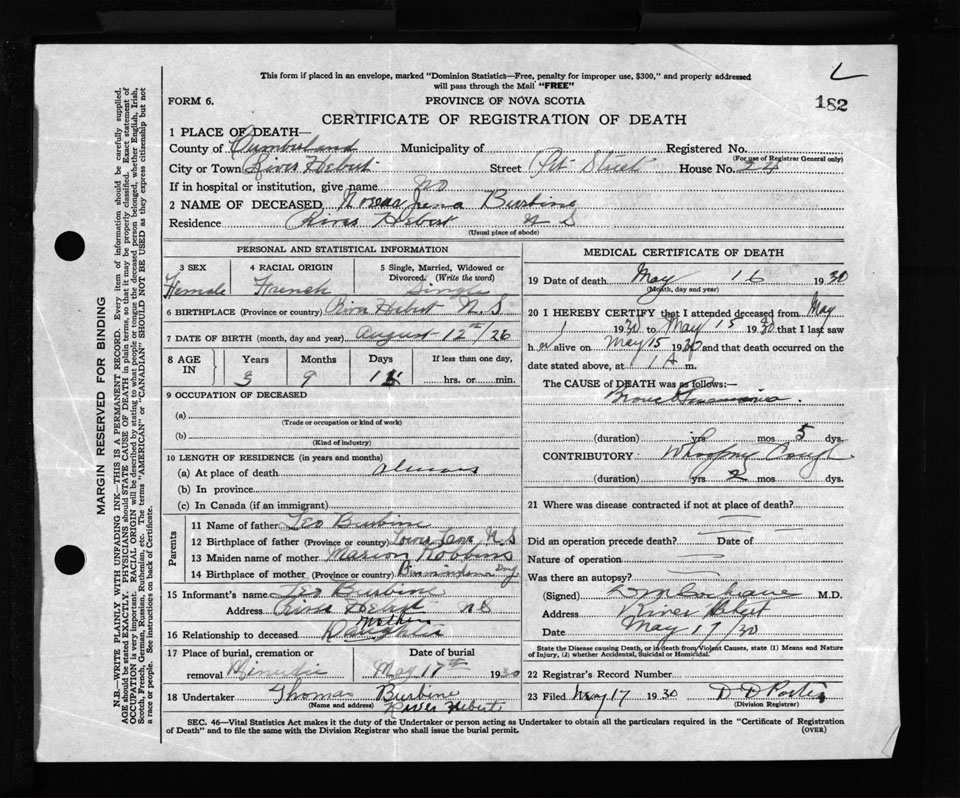 This form if placed in an envelope, marked "Dominion Statistics—Free, penalty for improper use, $300," and properly addressed
will pass through the Mail "FREE"
182
FORM 6.
PROVINCE OF NOVA SCOTIA
CERTIFICATE OF REGISTRATION OF DEATH
1 PLACE OF DEATH—
County of Cumberland Municipality of Registered No.
(For use of Registrar General only)
City or Town River Hebert Street Pit Street House No. 24
If in hospital or institution, give name no
2 NAME OF DECEASED Burbine
Residence River Hebert N S
(Usual place of abode)
PERSONAL AND STATISTICAL INFORMATION
3 SEX 4 RACIAL ORIGIN 5 Single, Married, Widowed or
Divorced. (Write the word)
Female French Single
6 BIRTHPLACE (Province or country) River Hebert N. S
7 DATE OF BIRTH (month, day and year) August 12th/26
8 AGE IN Years Months Days If less than one day,
3 9 hrs. or min.
9 OCCUPATION OF DECEASED
(a)
(Trade or occupation or kind of work)
(b)
(Kind of industry)
10 LENGTH OF RESIDENCE (in years and months)
(a) At place of death always
(b) In province
(c) In Canada (if an immigrant)
Parents
11 Name of father Leo Burbine
12 Birthplace of father (Province or country) N S
13 Maiden name of mother Marion Robbins
14 Birthplace of mother (Province or country)
15 Informant's name Leo Burbine
Address River Hebert NS
16 Relationship to deceased Daughter
17 Place of burial, cremation or Date of burial
removal Minudie May 17th 1930
18 Undertaker Thomas Burbine
(Name and address) River Hebert
MEDICAL CERTIFICATE OF DEATH
19 Date of death May 16 1930
(Month, day and year)
20 I HEREBY CERTIFY that I attended deceased from May
1 1930 to May 15 1930 that I last saw
h er alive on May 15 1930 and that death occurred on the
date stated above, at 1 A m.
The CAUSE of DEATH was as follows:—
Broncho Pneumonia.
(duration) yrs mos 5 dys.
CONTRIBUTORY Whooping Cough
(duration) yrs 2 mos dys.
21 Where was disease contracted if not at place of death?
Did an operation precede death? Date of
Nature of operation
Was there an autopsy?
(Signed) Cochrane M.D.
Address River Hebert
Date May 17/30
State the Disease causing Death, or in death from Violent Causes, state (1) Means and Nature
of Injury, (2) whether Accidental, Suicidal or Homicidal.
22 Registrar's Record Number
23 Filed May 17 1930 D D Porter
(Division Registrar)
SEC. 46—Vital Statistics Act makes it the duty of the Undertaker or person acting as Undertaker to obtain all the particulars required in the "Certificate of Registration
of Death" and to file the same with the Division Registrar who shall issue the burial permit.
(OVER)
MARGIN RESERVED FOR BINDING
N.B.—WRITE PLAINLY WITH UNFADING INK—THIS IS A PERMANENT RECORD. Every item of information should be carefully supplied.
AGE should be stated EXACTLY. PHYSICIANS should STATE CAUSE OF DEATH in plain terms, so that it may be properly classified. Exact statement of
OCCUPATION is very important. RACIAL ORIGIN will be described by stating to what people or tongue the deceased person belonged, whether English, Irish,
Scotch, French, German, Russian, Ruthenian, etc. The terms "AMERICAN" or "CANADIAN" SHOULD NOT BE USED as they express citizenship but not
a race or people. See instructions on back of Certificate.